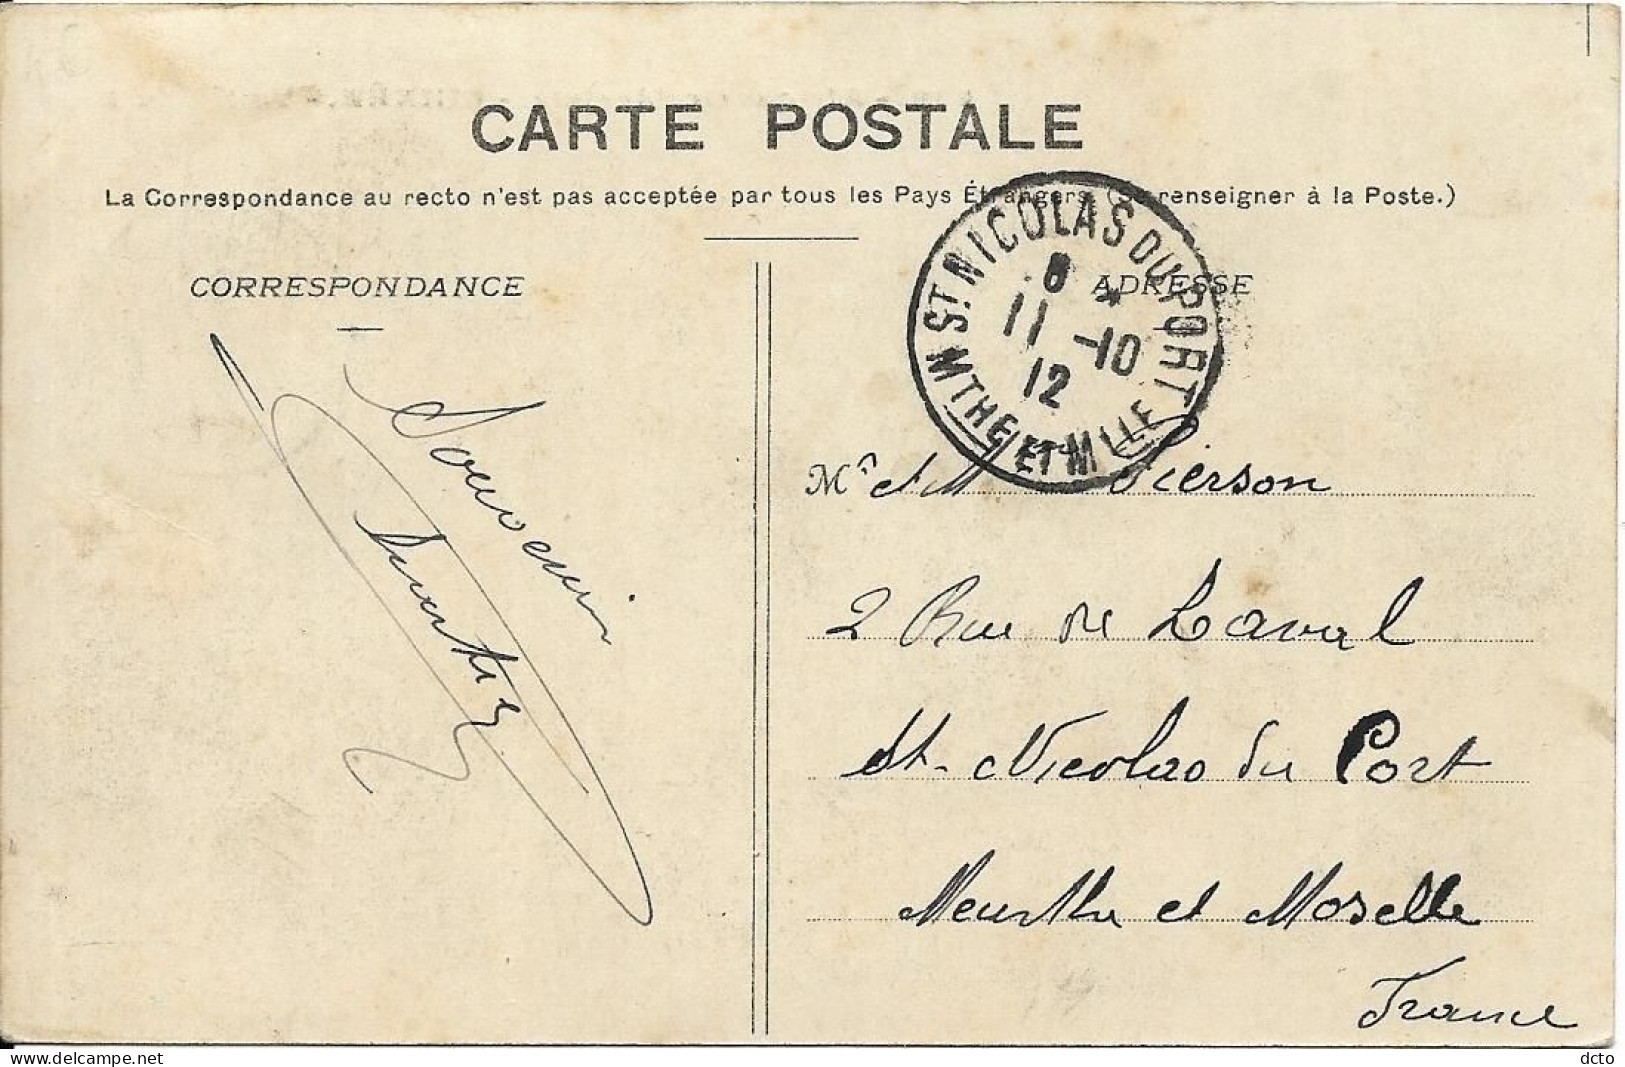 CARTE POSTALE
La Correspondance au recto n'est pas acceptée par tous les Pays Étrangers (Se renseigner à la Poste.)
CORRESPONDANCE
ADRESSE
ST. NICOLAS DU PORT
8 *
11 -10
12
MTHE ET MLLE
Souvenir
Mr et M Pierson
2 Rue de Laval
St. Nicolas du Port
Meurthe et Moselle
France
delcampe.net
dcto